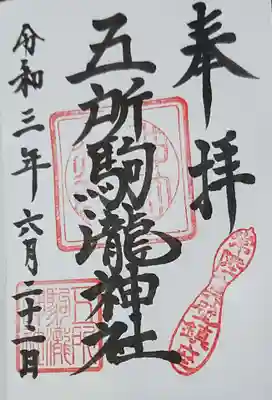 奉拝
五所駒瀧神社
令和三年六月二十二日
五所
駒瀧